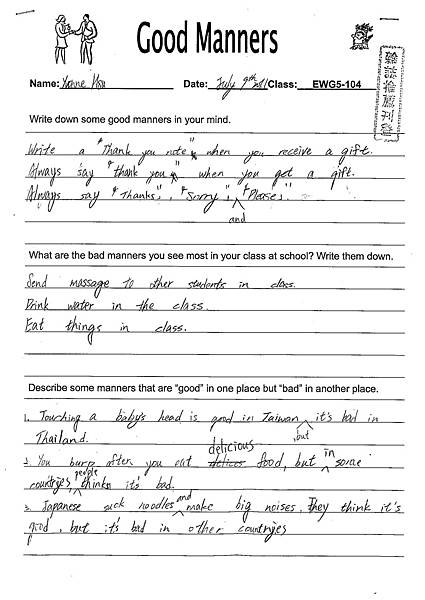 Good Manners
Name: Yvonne Hsu Date: July 9th 2011 Class: EWG5-104
Write down some good manners in your mind.
Write a "Thank you note" when you receive a gift.
Always say "thank you" when you get a gift.
Always say "Thanks", "Sorry", and "Please".
What are the bad manners you see most in your class at school? Write them down.
Send massage to other students in class.
Drink water in the class.
Eat things in class.
Describe some manners that are "good" in one place but "bad" in another place.
1. Touching a baby's head is good in Taiwan, but it's bad in
Thailand.
2. You burp after you eat delicious food, but in some
countryes people thinks it's bad.
3. Japanese suck noodles and make big noises. They think it's
good, but it's bad in other countryes